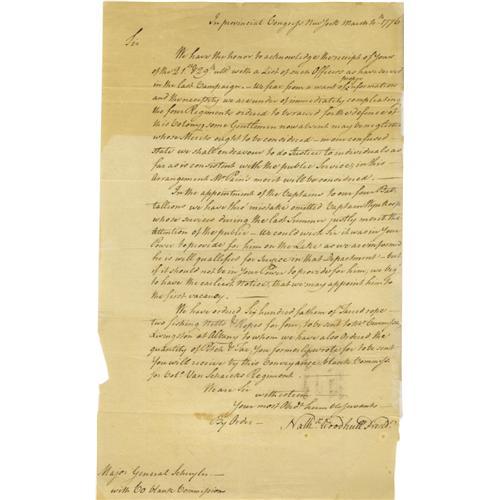 In provincial Congress New York March 4th 1776
Sir
We have the honor to acknowledge the receipt of Yours
of the 21st & 29th ultd with a List of such Officers as have served
in the last Campaign — We fear from a want of proper Information
and the necessity we are under of immediately compleating
the four Regiments ordered to be raised for the defence of
this Colony, some Gentlemen now absent may be neglected
whose Merits ought to be considered — in our confused
state we shall endeavour to do Justice to individuals as
far as is consistent with the public Service, in this
Arrangement Mr Pain's merit will be considered —
In the appointment of the Captains to our four Bat-
tallions we have thro' mistake omitted Captain
whose services during the last Summer justly merit the
Attention of the public — We could wish Sir it was in Your
Power to provide for him on the Lake as we are informed
he is well qualified for Service in that Department — but
if it should not be in your Power to provide for him, we beg
to have the earliest Notice, that we may appoint him to
the first vacancy. —
We have ordered Six hundred fathom of Tarred rope
two fishing Netts & Ropes for four, to be sent to Mr Commissy
Livingston at Albany to whom we have also Ordered the
quantity of Pitch & Tar You formerly wrote for to be sent
You will receive by this Conveyance blank Commiss
for Coll Van Schaicks Regiment
We are Sir
with esteem
Your most Obedt humble Servants
By Order — Nathl Woodhull Presidt
Major General Schuyler
with blank Commissions